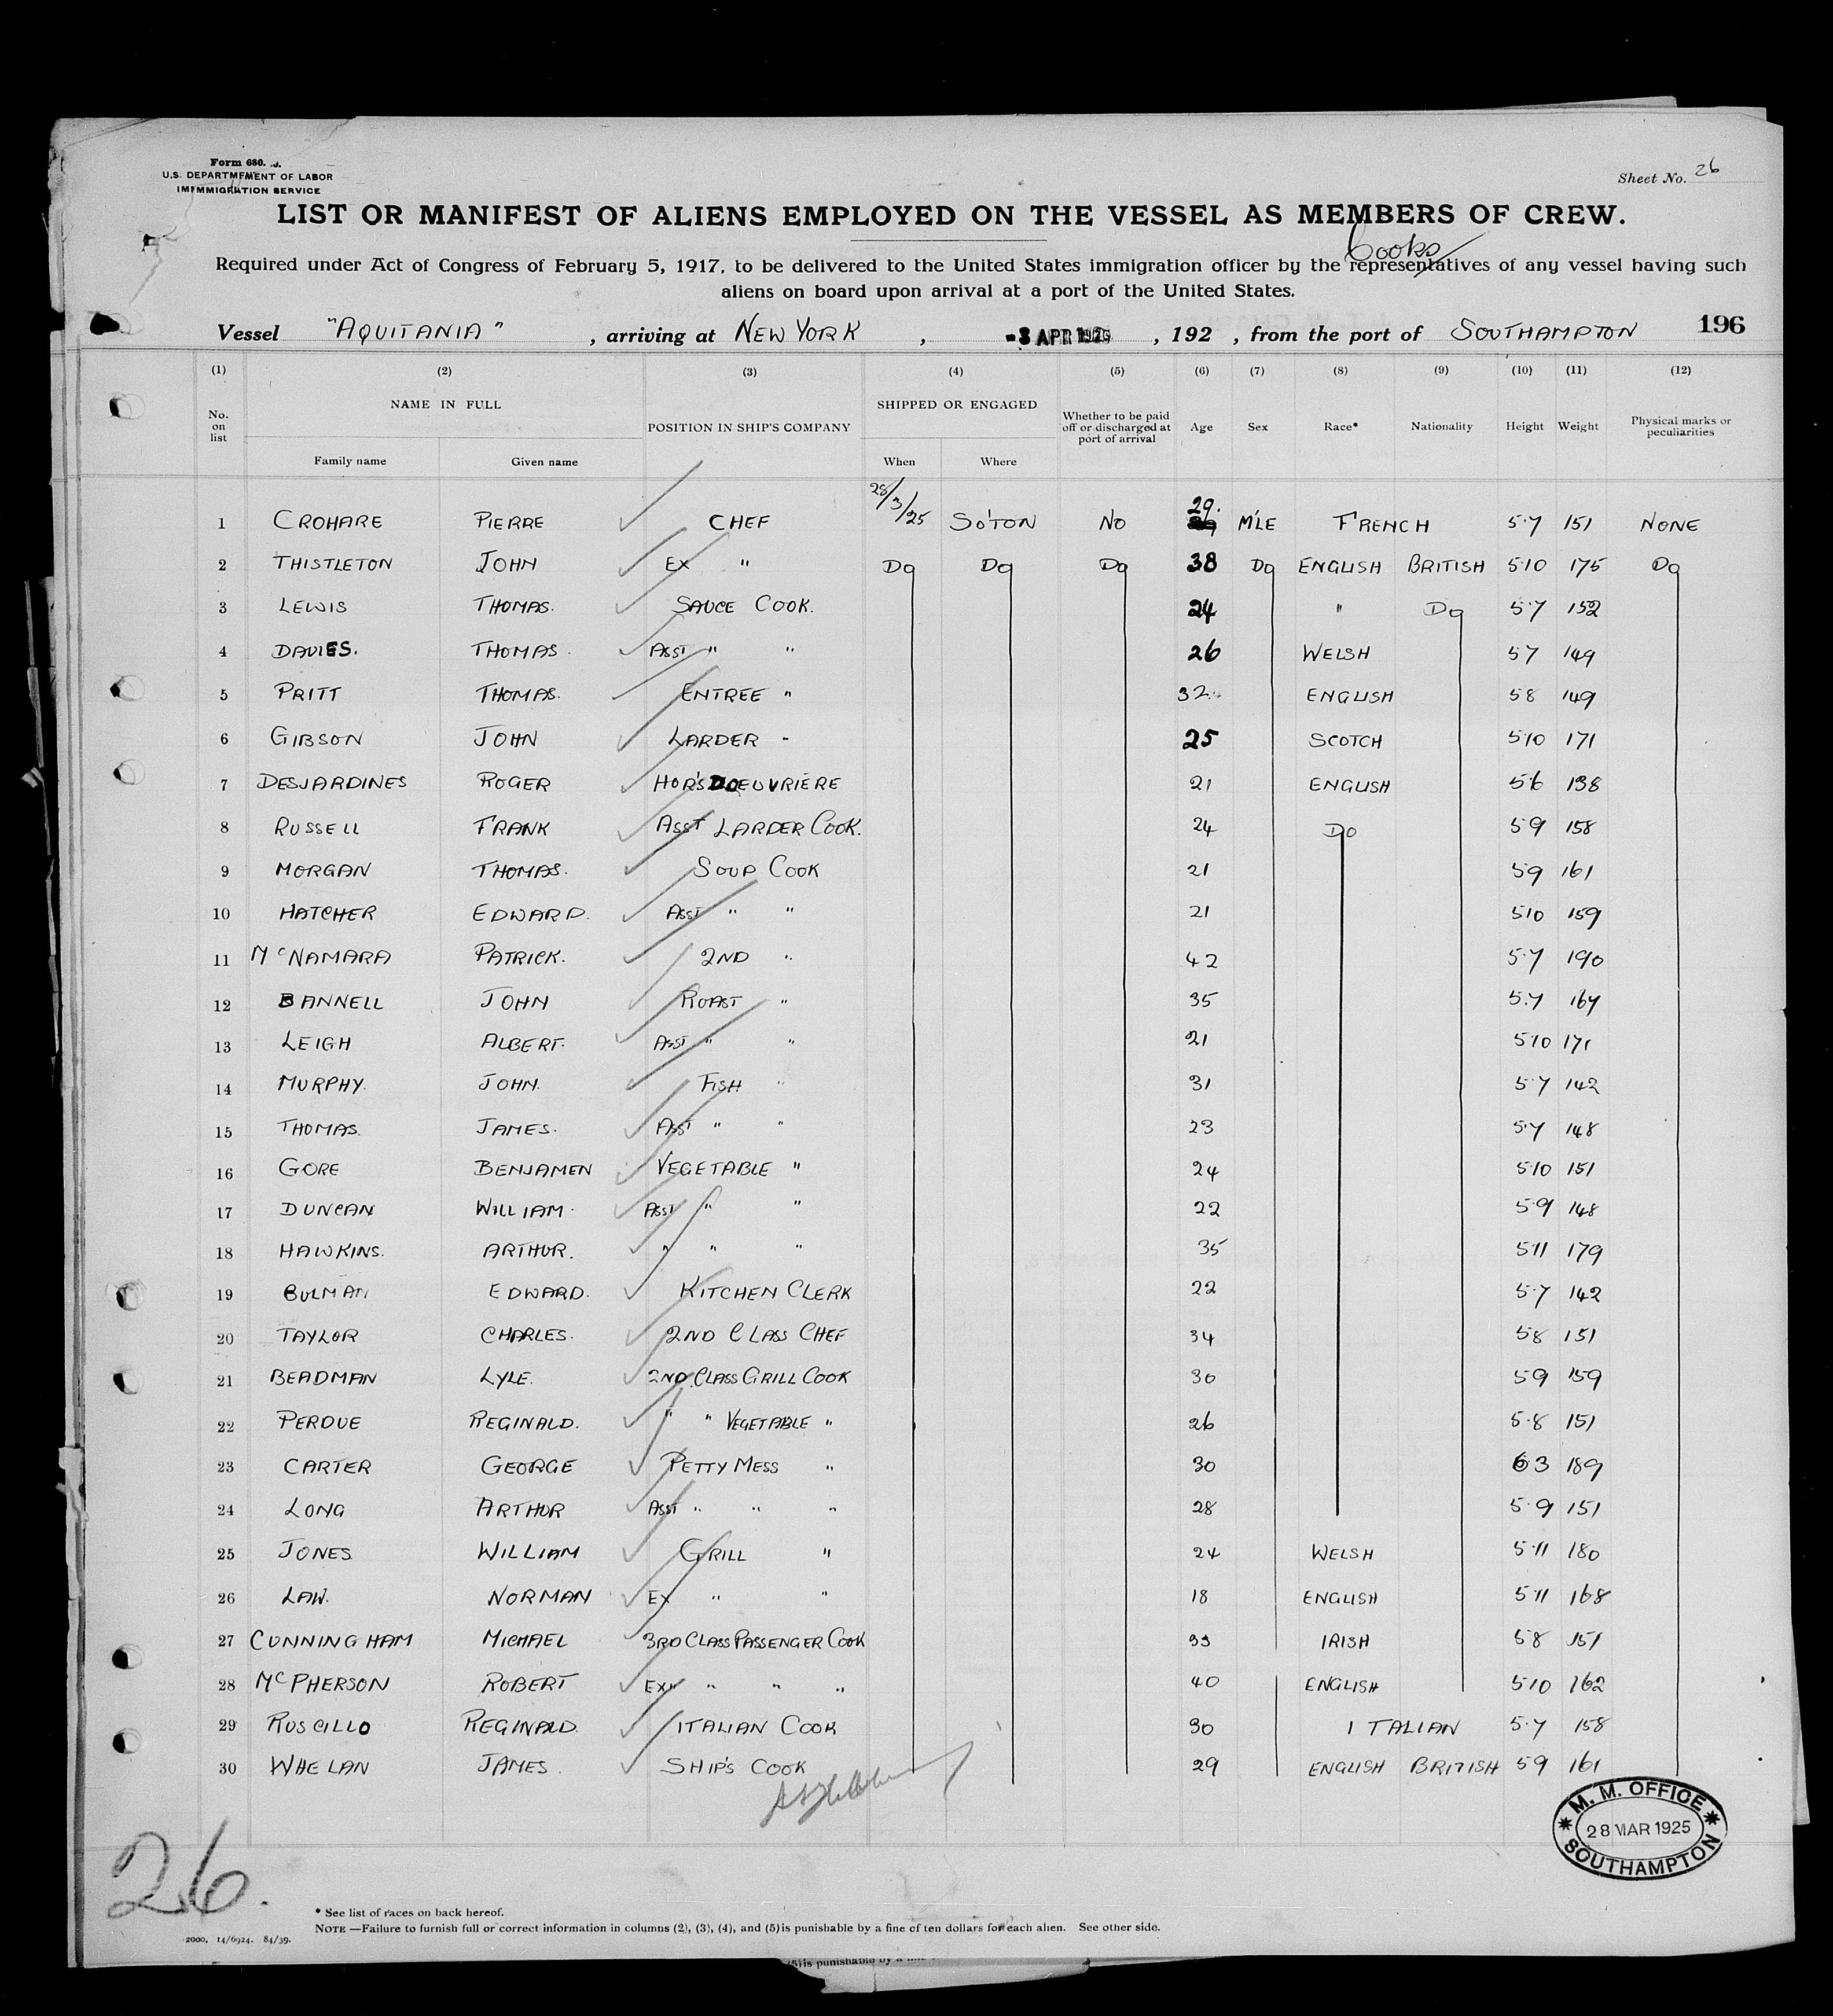 Form 680.
U.S. DEPARTMFMENT OF LABOR
IMFMMIGRATION SERVICE
Sheet No. 26
LIST OR MANIFEST OF ALIENS EMPLOYED ON THE VESSEL AS MEMBERS OF CREW.
Cooks
Required under Act of Congress of February 5, 1917, to be delivered to the United States immigration officer by the representatives of any vessel having such
aliens on board upon arrival at a port of the United States.
Vessel "AQUITANIA", arriving at NEW YORK, -3 APR 1925, 192 , from the port of SOUTHAMPTON 196
(1) (2) (3) (4) (5) (6) (7) (8) (9) (10) (11) (12)
No. on list NAME IN FULL POSITION IN SHIP'S COMPANY SHIPPED OR ENGAGED Whether to be paid off or discharged at port of arrival Age Sex Race* Nationality Height Weight Physical marks or peculiarities
Family name Given name When Where
1 CROHARE PIERRE CHEF 28/3/25 SO'TON NO 29. M'LE FRENCH 5·7 151 NONE
2 THISTLETON JOHN EX " Do Do Do 38 Do ENGLISH BRITISH 5·10 175 Do
3 LEWIS THOMAS. SAUCE COOK. 24 " Do 5·7 152
4 DAVIES. THOMAS. ASST " " 26 WELSH 5·7 149
5 PRITT THOMAS. ENTREE " 32 ENGLISH 5·8 149
6 GIBSON JOHN LARDER " 25 SCOTCH 5·10 171
7 DESJARDINES ROGER HOR'S DOEUVRIERE 21 ENGLISH 5·6 138
8 RUSSELL FRANK ASST LARDER COOK. 24 Do 5·9 158
9 MORGAN THOMAS. SOUP COOK 21 5·9 161
10 HATCHER EDWARD. ASST " " 21 5·10 159
11 McNAMARA PATRICK. 2ND " 42 5·7 190
12 BANNELL JOHN ROAST " 35 5·7 167
13 LEIGH ALBERT. ASST " " 21 5·10 171
14 MURPHY. JOHN. FISH " 31 5·7 142
15 THOMAS. JAMES. ASST " " 23 5·7 148
16 GORE BENJAMEN VEGETABLE " 24 5·10 151
17 DUNCAN WILLIAM. ASST " " 22 5·9 148
18 HAWKINS. ARTHUR. " " " 35 5·11 179
19 BULMAN EDWARD. KITCHEN CLERK 22 5·7 142
20 TAYLOR CHARLES. 2ND CLASS CHEF 34 5·8 151
21 BEADMAN LYLE. 2ND CLASS GRILL COOK 30 5·9 159
22 PERDUE REGINALD. " " VEGETABLE " 26 5·8 151
23 CARTER GEORGE PETTY MESS " 30 6·3 189
24 LONG ARTHUR ASST " " " 28 5·9 151
25 JONES WILLIAM GRILL " 24 WELSH 5·11 180
26 LAW. NORMAN EX " " 18 ENGLISH 5·11 168
27 CUNNINGHAM MICHAEL 3RD CLASS PASSENGER COOK 33 IRISH 5·8 151
28 McPHERSON ROBERT EX " " " " 40 ENGLISH 5·10 162
29 RUSCILLO REGINALD. ITALIAN COOK 30 ITALIAN 5·7 158
30 WHELAN JAMES. SHIP'S COOK 29 ENGLISH BRITISH 5·9 161
M. M. OFFICE
28 MAR 1925
SOUTHAMPTON
26.
* See list of races on back hereof.
NOTE—Failure to furnish full or correct information in columns (2), (3), (4), and (5) is punishable by a fine of ten dollars for each alien. See other side.
2000, 14/6924. 84/39.
(5) is punishable by a